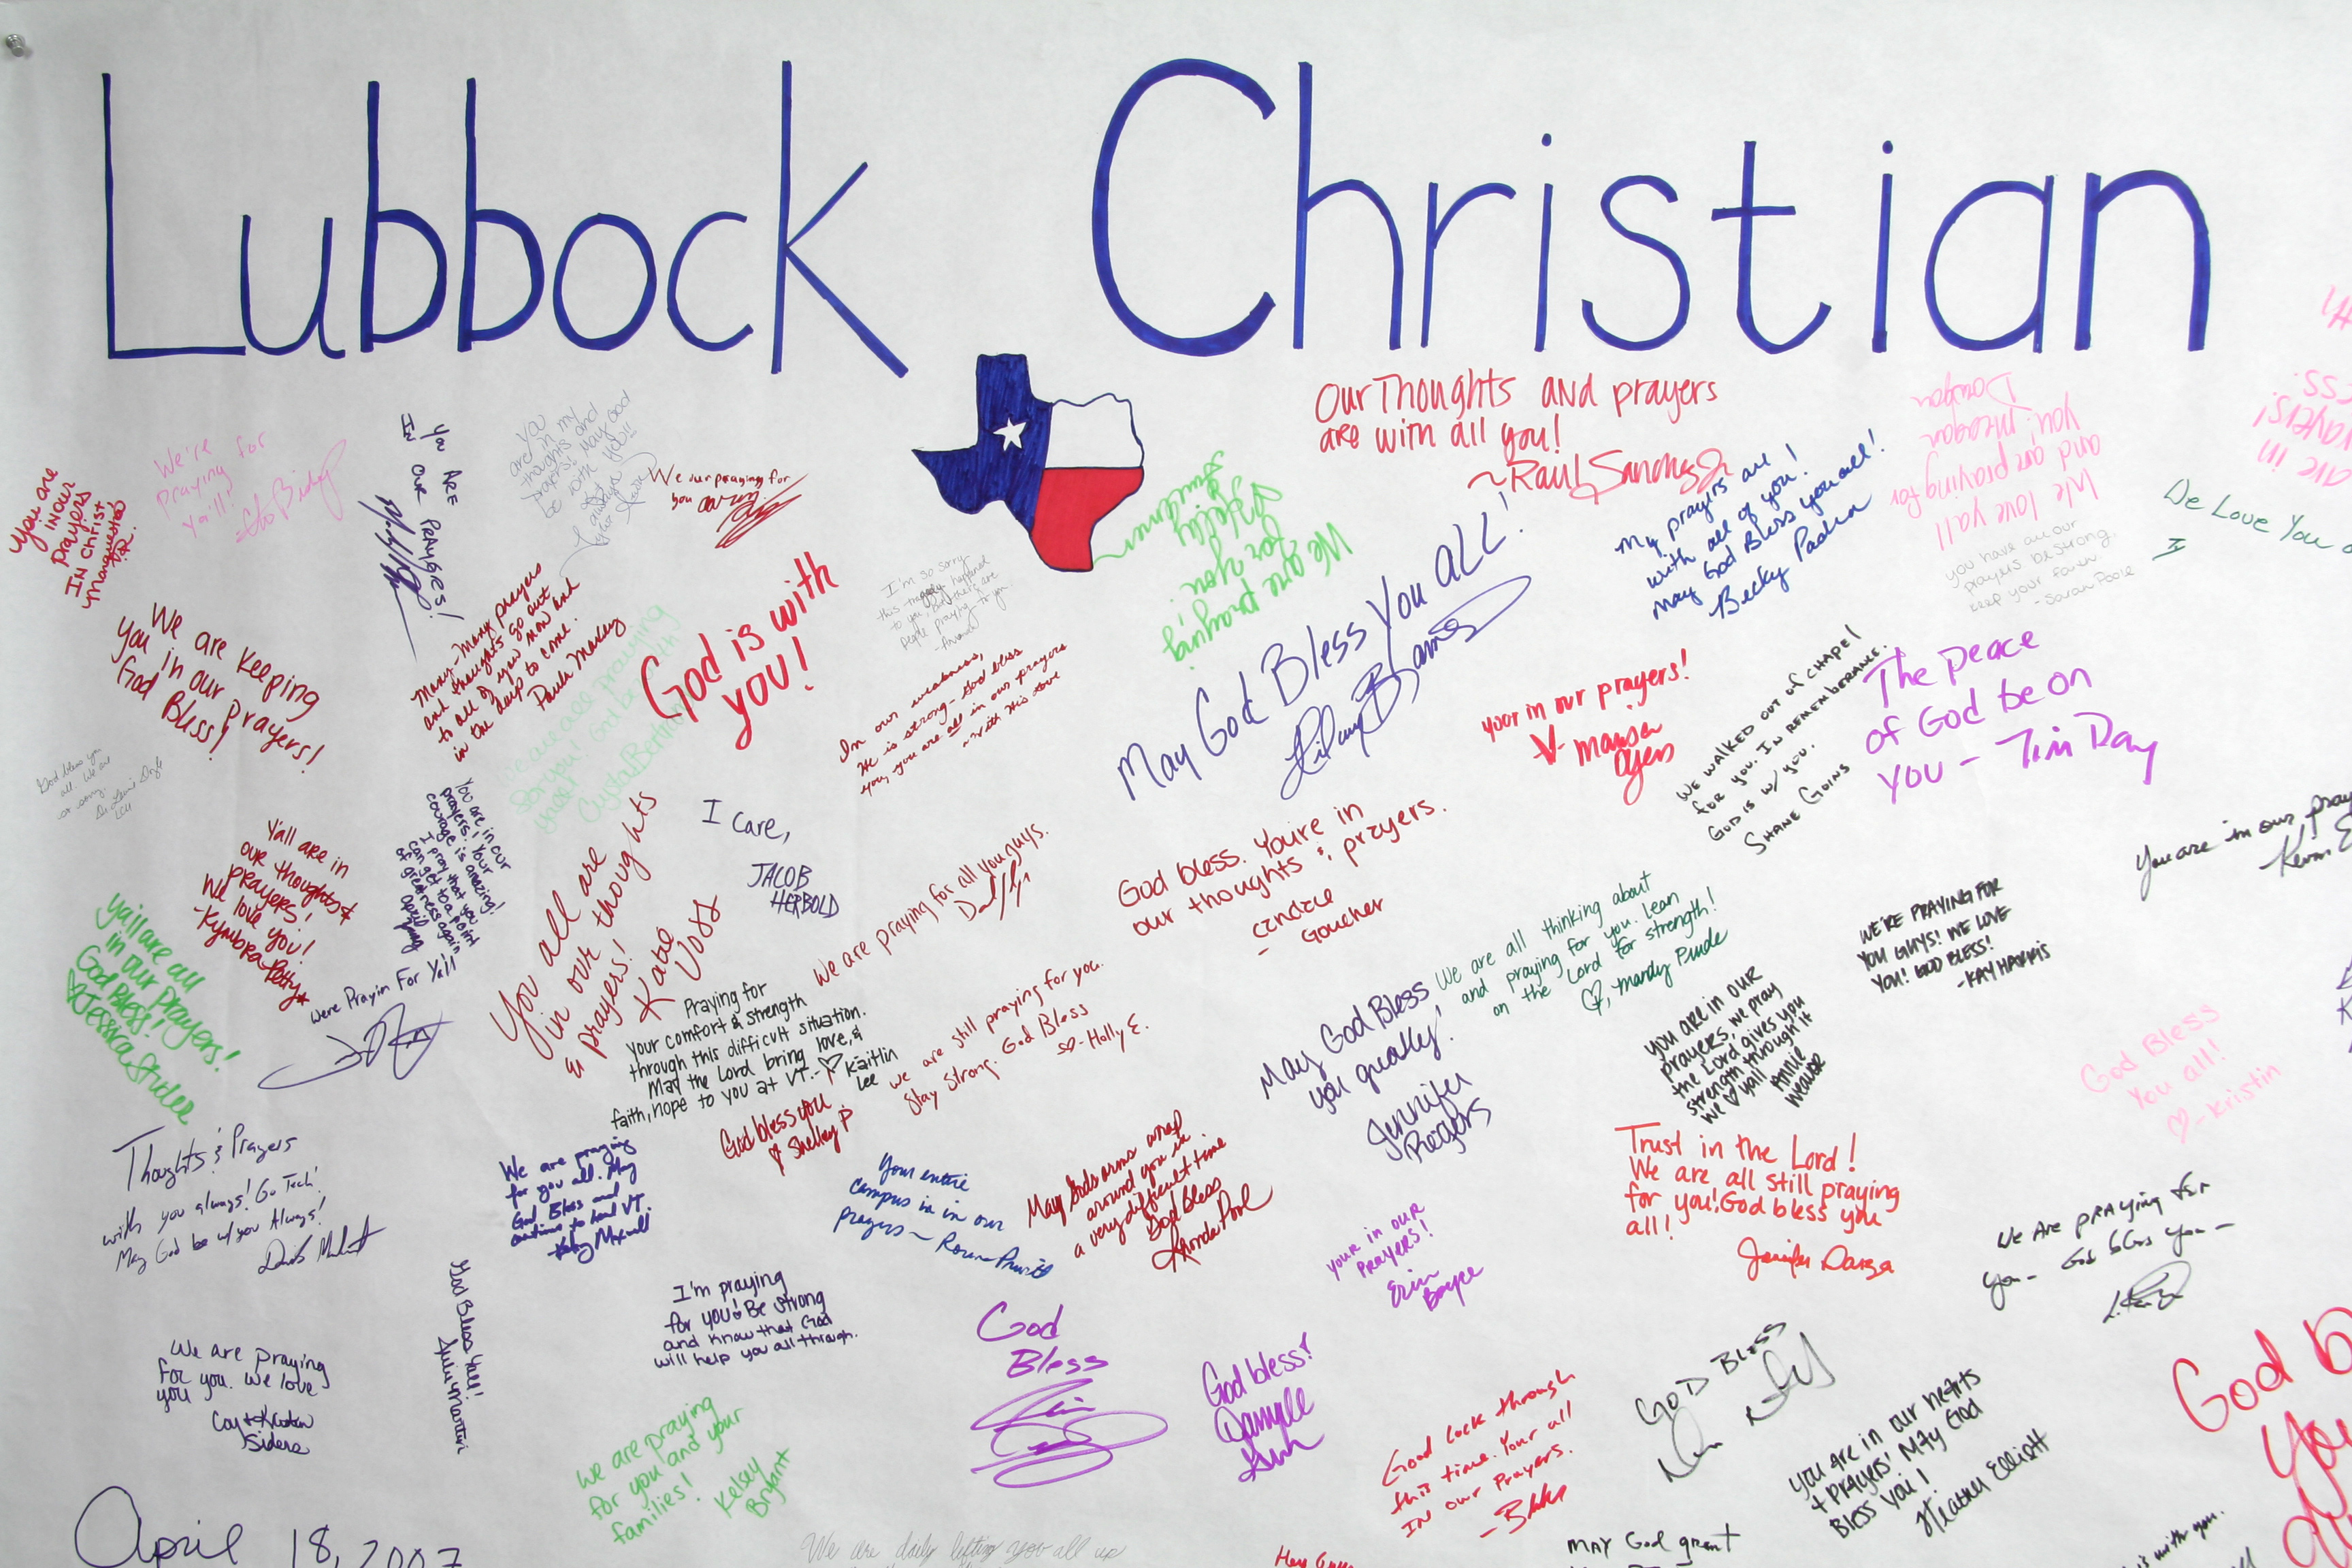 Lubbock Christian
Our Thoughts and prayers
are with all you!
~Raul Sanchez Jr
You are
in our
prayers
IN Christ
We're
praying for
Ya'll!
You ARE
IN OUR PRAYERS!
you
are in my
thoughts and
prayers! May God
be with you!!
We our praying for
you
We are praying
for you!
My prayers are
with all of you!
May God Bless you all!
Becky Padon
We love yall
and are praying for
you! Meagan
you have all our
prayers be strong.
keep your faith
-Sarah Poole
We Love You
We are keeping
you in our prayers!
God Bless!
Many-Many prayers
and thoughts go out
to all of you now and
in the days to come.
Paula Manley
God is with
you!
I'm so sorry
this tragedy happened
to you. But there's are
people praying for you.
In our weakness,
He is strong- God bless
you, you are all in our prayers
~ with His love
May God Bless You ALL!
your in our prayers!
WE WALKED OUT OF CHAPEL
FOR YOU. IN REMEMBERANCE.
GOD IS W/ YOU.
SHANE GOINS
The peace
of God be on
you - Tim Day
God bless you
all. We are
so sorry.
LCU
Y'all are in
our thoughts &
prayers!
We love you!
-Kymbra Petty
You are in our
prayers! Your
courage is amazing!
I pray that you
can get to a point
of greatness again
April
You all are
in our thoughts
& prayers!
Katie
Voss
I care,
JACOB
HERBOLD
We are praying for all you guys.
God bless. You're in
our thoughts & prayers.
- Candice
Goucher
We are all thinking about
and praying for you. Lean
on the Lord for strength!
♡, Mandy Pinde
WE'RE PRAYING FOR
YOU GUYS! WE LOVE
YOU! GOD BLESS!
-KAY HARRIS
You are in our pray
ya'll are all
in our prayers!
God Bless!
Were Prayin For Ya'll
Praying for
your comfort & strength
through this difficult situation.
May the Lord bring love, &
faith, hope to you at VT. - ♡ Kaitlin
Lee
we are still praying for you.
Stay Strong. God Bless
- Holly E.
May God Bless
you greatly!
Jennifer
Rogers
you are in our
prayers, we pray
the Lord gives you
strength through it
we ♡ yall
Annie
Weaver
God Bless
You all!
♡ - Kristin
God bless you
♡ Shelley P
Thoughts & Prayers
with you always! Go Tech!
May God be w/ you Always!
We are praying
for you all. May
God Bless and
continue to heal VT.
Your entire
campus is in our
prayers ~
May Gods arms wrap
around you in
a very difficult time
God Bless
Rhonda Pool
Trust in the Lord!
We are all still praying
for you! God bless you
all!
Jenifer Darza
your in our
prayers!
Erin
Boyce
We Are praying for
you - God bless you -
God Bless Yall!
I'm praying
for you! Be strong
and know that God
will help you all through.
We are praying
for you. We love
you
God
Bless
God bless!
Danyelle
GOD Bless
we are praying
for you and your
families!
Kelsey
Bryant
Good luck through
this time. Your all
in our prayers.
you are in our hearts
+ prayers! May God
Bless you!
Heather Elliott
God b
April 18, 2007
We are daily lifting you all up
MAY God grant
is with you.